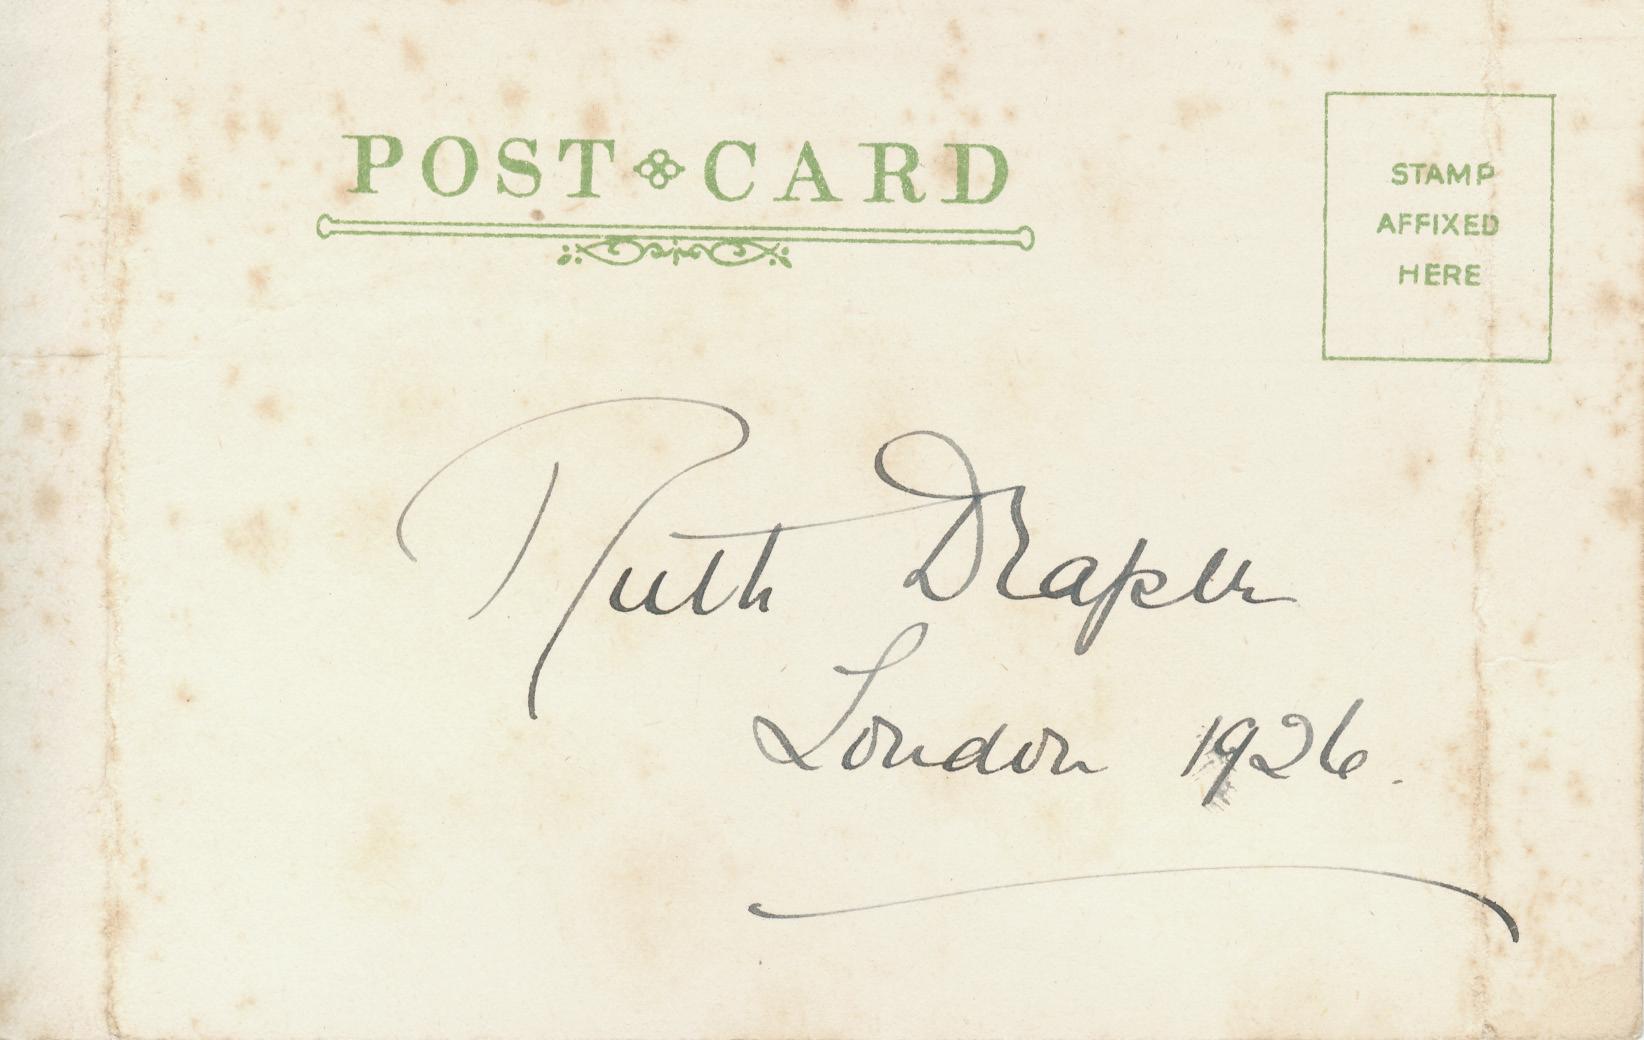 POST CARD
STAMP
AFFIXED
HERE
Ruth Draper
London 1926.